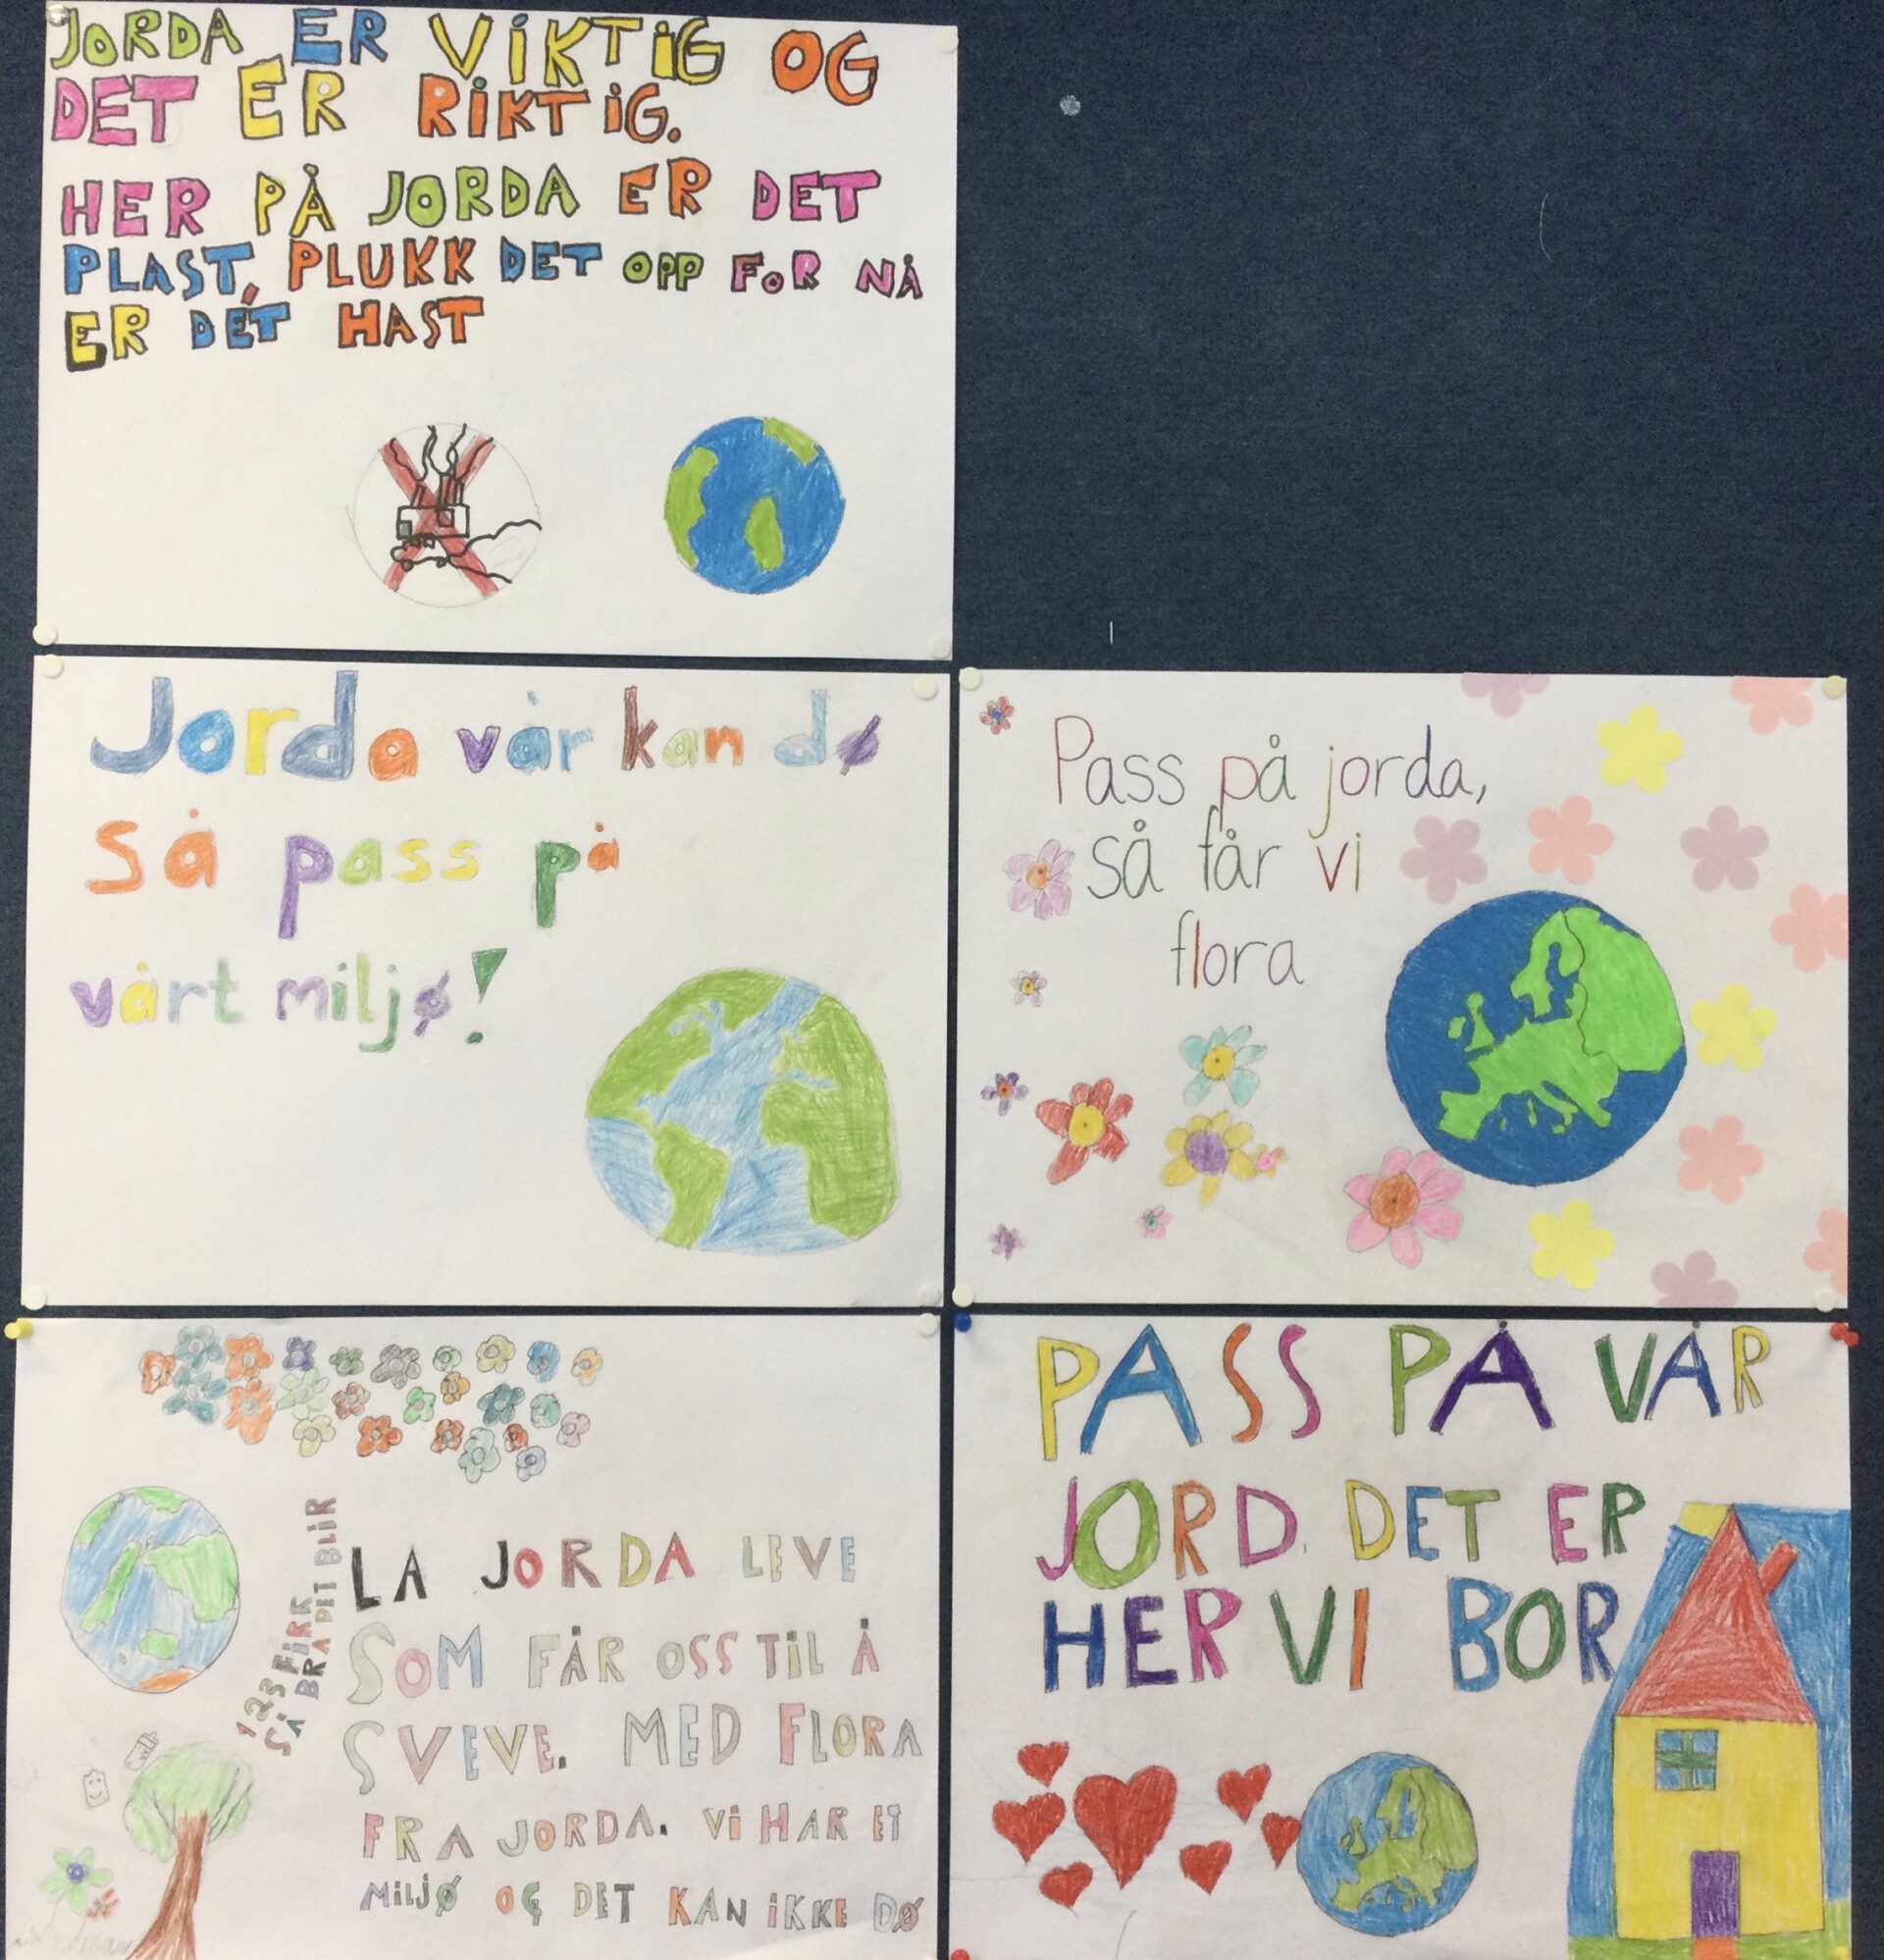 JORDA ER VIKTIG OG
DET ER RIKTIG.
HER PÅ JORDA ER DET
PLAST, PLUKK DET OPP FOR NÅ
ER DET HAST
Jorda vår kan dø
Så pass på
vårt miljø!
Pass på jorda,
så får vi
flora
123 FIRR
SÅ BRA DET BLIR
LA JORDA LEVE
SOM FÅR OSS TIL Å
SVEVE. MED FLORA
FRA JORDA. Vi HAR ET
MILJØ OG DET KAN IKKE DØ
PASS PÅ VÅR
JORD. DET ER
HER VI BOR